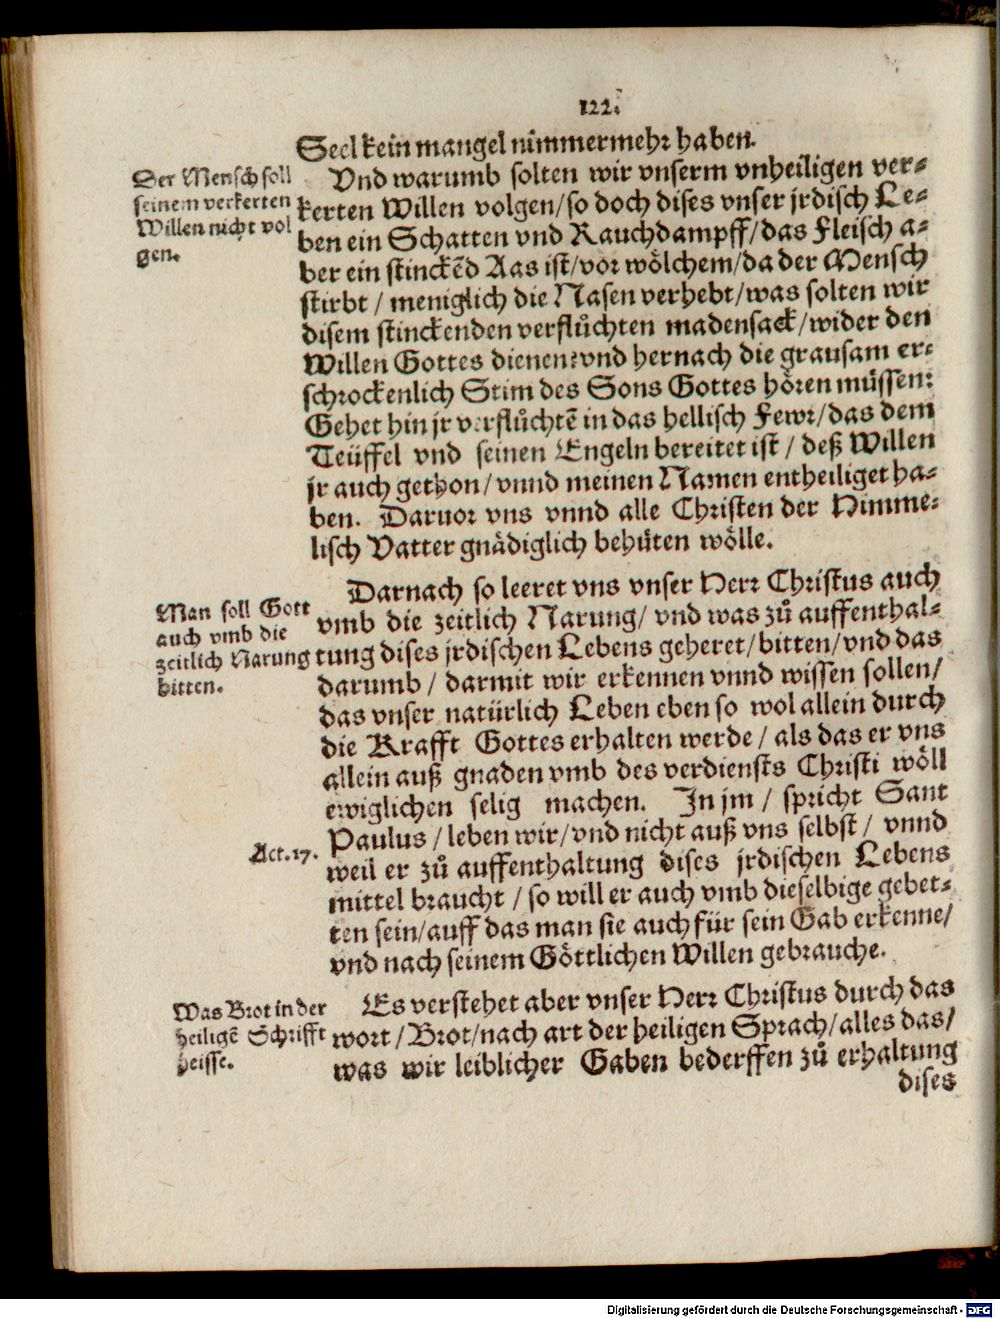 122.
Seel kein mangel nimmermehr haben.
Der Mensch soll
seinem verkerten
Willen nicht vol
gen.
Vnd warumb solten wir vnserm vnheiligen ver-
kerten Willen volgen/so doch dises vnser jrdisch Le-
ben ein Schatten vnd Rauchdampff/das Fleisch a-
ber ein stinckẽd Aas ist/vor wölchem/da der Mensch
stirbt / meniglich die Nasen verhebt/was solten wir
disem stinckenden verflůchten madensack/wider den
Willen Gottes dienen? vnd hernach die grausam er-
schrockenlich Stim des Sons Gottes hören müssen:
Gehet hin jr verflůchtẽ in das hellisch Fewr/das dem
Teüffel vnd seinen Engeln bereitet ist / deß Willen
jr auch gethon/vnnd meinen Namen entheiliget ha-
ben. Daruor vns vnnd alle Christen der Himme-
lisch Vatter gnädiglich behüten wölle.
Man soll Gott
auch vmb die
zeitlich Narung
bitten.
Darnach so leeret vns vnser Herr Christus auch
vmb die zeitlich Narung/ vnd was zů auffenthal-
tung dises jrdischen Lebens geheret/bitten/vnd das
darumb / darmit wir erkennen vnnd wissen sollen/
das vnser natürlich Leben eben so wol allein durch
die Krafft Gottes erhalten werde / als das er vns
allein auß gnaden vmb des verdiensts Christi wöll
ewiglichen selig machen. In jm / spricht Sant
Act. 17.
Paulus / leben wir/vnd nicht auß vns selbst / vnnd
weil er zů auffenthaltung dises jrdischen Lebens
mittel braucht / so will er auch vmb dieselbige gebet-
ten sein/auff das man sie auch für sein Gab erkenne/
vnd nach seinem Göttlichen Willen gebrauche.
Was Brot in der
heiligẽ Schrifft
heisse.
Es verstehet aber vnser Herr Christus durch das
wort / Brot/nach art der heiligen Sprach/alles das/
was wir leiblicher Gaben bederffen zů erhaltung
dises
Digitalisierung gefördert durch die Deutsche Forschungsgemeinschaft - DFG